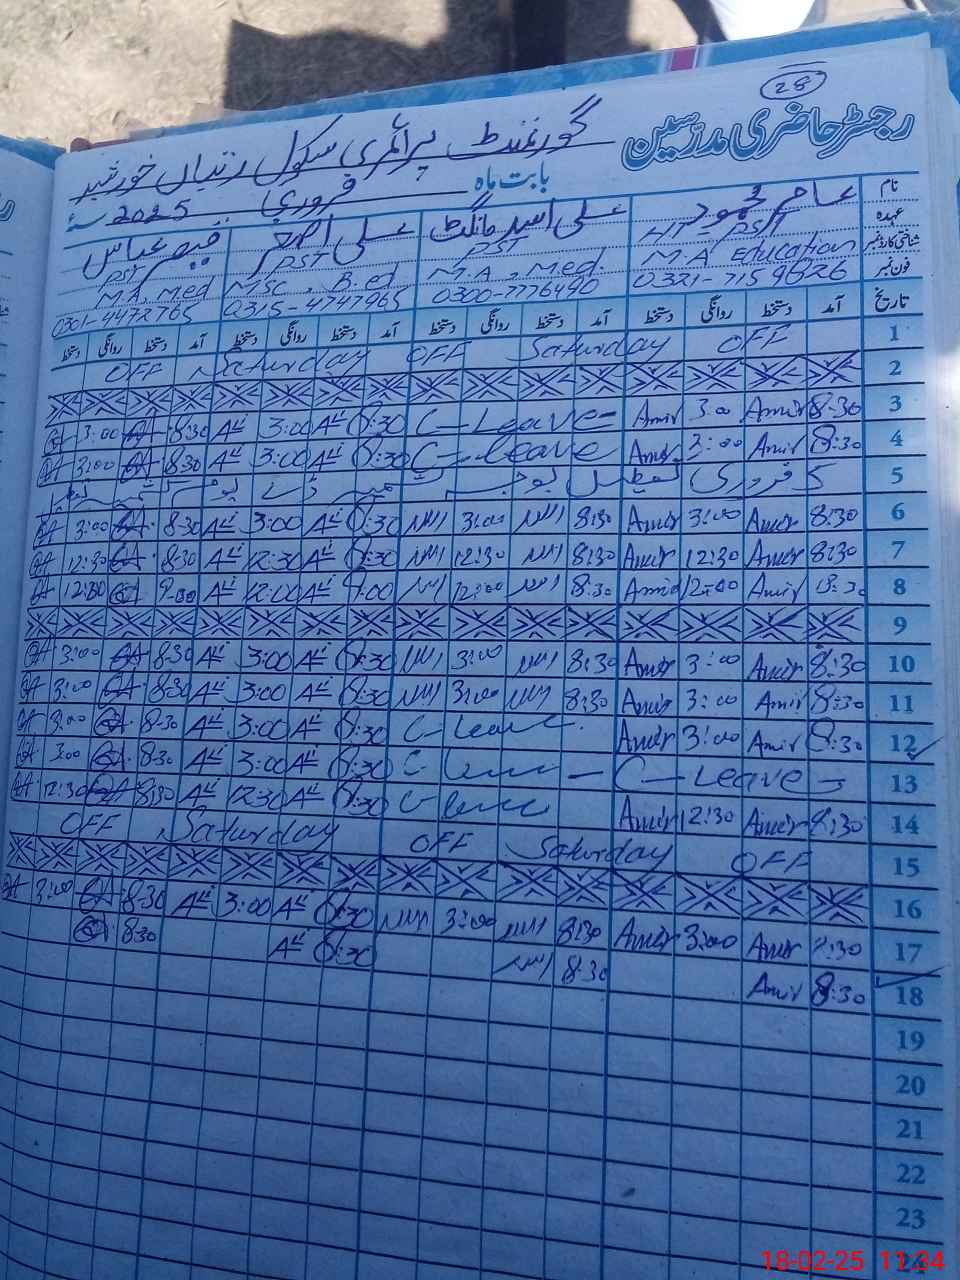 28
رجسٹر حاضری مدرسین
گورنمنٹ پرائمری سکول رندیاں خورشید
بابت ماہ فروری 2025ء
نام عامر محمود علی اسد مانگٹ علی اکبر قیصر عباس
عہدہ HT PST PST PST PST
شناختی کارڈ نمبر M.A Education M.A, M.ed. MSc, B.ed M.A, M.ed
فون نمبر 0321-7159826 0300-7776490 0315-4747965 0301-4472765
تاریخ آمد دستخط روانگی دستخط آمد دستخط روانگی دستخط آمد دستخط روانگی دستخط آمد دستخط روانگی دستخط
1 OFF Saturday OFF Saturday OFF
2
3 8-30 Amir 3:00 Amir C-Leave 8:30 3:00 8:30 3:00
4 8:30 Amir 3:00 Amir C-Leave 8:30 3:00 8:30 3:00
5 5 فروری تعطیل بوجہ یوم
6 8:30 Amir 3:00 Amir 8:30 3:00 8:30 3:00 8:30 3:00
7 8:30 Amir 12:30 Amir 8:30 12:30 8:30 12:30 8:30 12:30
8 8:30 Amir 12:00 Amir 8:30 12:00 9:00 12:00 9:00 12:30
9
10 8:30 Amir 3:00 Amir 8:30 3:00 8:30 3:00 8:30 3:00
11 8:30 Amir 3:00 Amir 8:30 3:00 8:30 3:00 8:30 3:00
12 8:30 Amir 3:00 Amir C-Leave 8:30 3:00 8-30 3:00
13 C-Leave C-Leave 8:30 3:00 8:30 3:00
14 8:30 Amir 12:30 Amir C-Leave 8:30 12:30 8:30 12:30
15 OFF Saturday OFF Saturday OFF
16
17 8:30 Amir 3:00 Amir 8:30 3:00 8:30 3:00 8-30 3:00
18 8:30 Amir 8:30 8:30 8:30
19
20
21
22
23
18-02-25 11:34